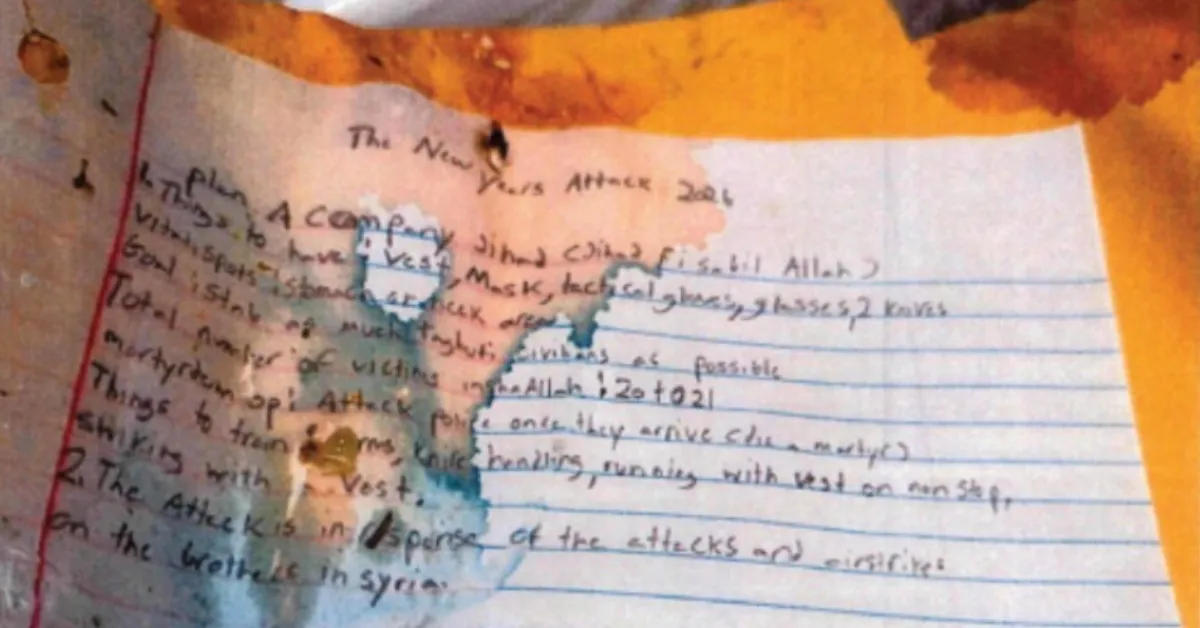 The New Years Attack 2026
Plan A Company Jihad (Jihad fi sabil Allah)
1. Things to have : Vest, Mask, tactical gloves, glasses, 2 knives
Vital spots : stomach or neck area
Goal : stab as much civilians as possible
Total number of victims inshaAllah : 20 to 21
martyrdom op : Attack police once they arrive (die a martyr)
Things to train : knife handling, running with vest on non stop,
striking with vest.
2. The Attack is in response of the attacks and airstrikes
on the brothers in syria.